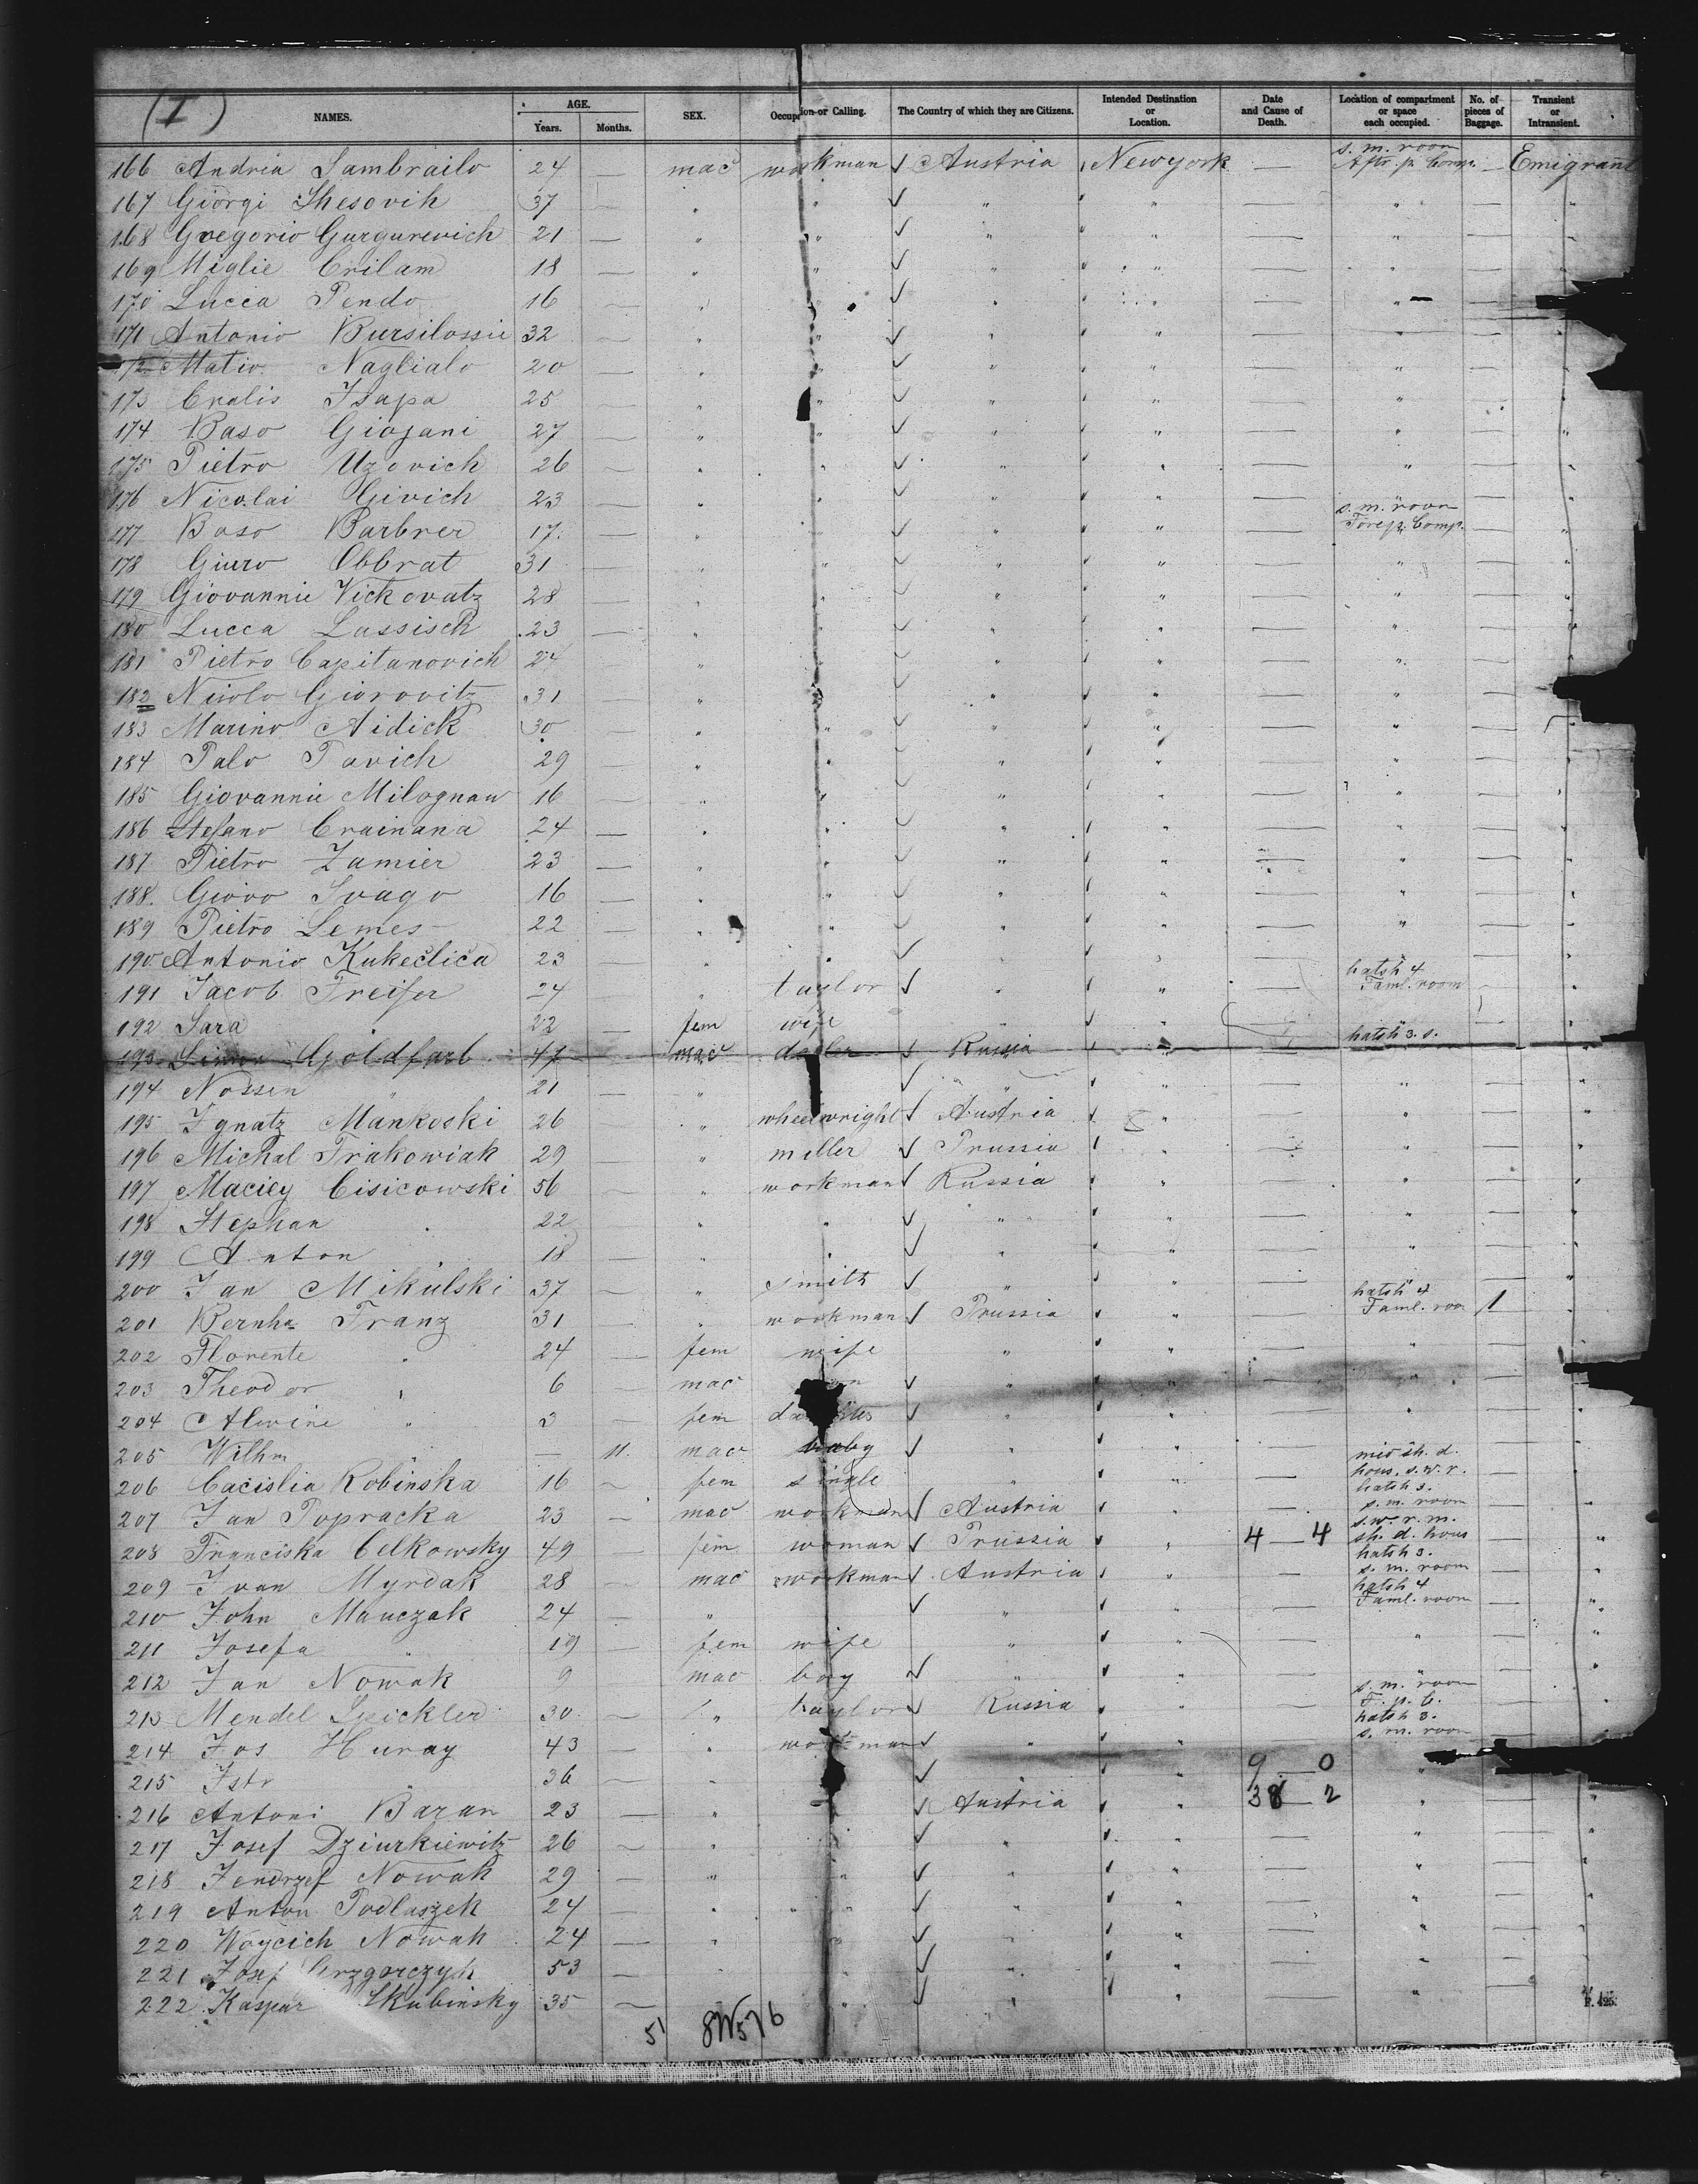 (I)
NAMES. AGE. Years. Months. SEX. Occupation or Calling. The Country of which they are Citizens. Intended Destination or Location. Date and Cause of Death. Location of compartment or space each occupied. No. of pieces of Baggage. Transient or Intransient.
166 Andria Sambrailo 24 — mac workman ✓ Austria Newyork — s. m. room Aftr. p. Comp. — Emigrant
167 Giorgi Shesovih 37 — " " ✓ " " — " — "
168 Gregorio Gurgurevich 21 — " " ✓ " " — " — "
169 Miglie Crilam 18 — " " ✓ " " — " — "
170 Lucca Pendo 16 — " " ✓ " " — " — "
171 Antonio Bursilossie 32 — " " ✓ " " — " — "
172 Matio Naglialo 20 — " " ✓ " " — " — "
173 Cralis Isapa 25 — " " ✓ " " — " — "
174 Baso Giojani 27 — " " ✓ " " — " — "
175 Pietro Uzovich 26 — " " ✓ " " — " — "
176 Nicolai Givich 23 — " " ✓ " " — " — "
177 Baso Barbrer 17 — " " ✓ " " — s. m. room Forep. Comp. — "
178 Giuro Obbrat 31 — " " ✓ " " — " — "
179 Giovannie Vickovatz 28 — " " ✓ " " — " — "
180 Lucca Lassisch 23 — " " ✓ " " — " — "
181 Pietro Capitanovich 24 — " " ✓ " " — " — "
182 Nicolo Giorovitz 31 — " " ✓ " " — " — "
183 Marino Aidick 30 — " " ✓ " " — " — "
184 Palo Pavich 29 — " " ✓ " " — " — "
185 Giovannie Milognaw 16 — " " ✓ " " — " — "
186 Stefano Crainana 24 — " " ✓ " " — " — "
187 Pietro Zamier 23 — " " ✓ " " — " — "
188 Giovo Svago 16 — " " ✓ " " — " — "
189 Pietro Lemes 22 — " " ✓ " " — " — "
190 Antonio Kukeclica 23 — " " ✓ " " — " — "
191 Jacob Treifer 24 — " taylor ✓ " " — hatsh 4 Faml. room — "
192 Sara 22 — fem wife " " — " — "
193 Goldfarb 47 — mac ✓ Russia " — hatsh 3. s. — "
194 Nossen " 21 — " ✓ " " — " — "
195 Ignatz Mankoski 26 — " wheelwright ✓ Austria " — " — "
196 Michal Frakowiak 29 — " miller ✓ Prussia " — " — "
197 Maciey Cisicowski 56 — " workman ✓ Russia " — " — "
198 Stephan " 22 — " " ✓ " " — " — "
199 Anton " 18 — " " ✓ " " — " — "
200 Jan Mikulski 37 — " smith ✓ " " — " — "
201 Bernha Franz 31 — " workman ✓ Prussia " — hatsh 4 Faml. roo 1 "
202 Florente " 24 — fem wife " " — " —
203 Theodor " 6 — mac ✓ " " — " —
204 Alwine " 3 — fem ✓ " " — " —
205 Wilhm " — 11. mac baby ✓ " " —
206 Cacislia Robinska 16 — fem single " " — mid sh. d. hous. s. w. r. —
207 Jan Popracka 23 — mac workman ✓ Austria " — hatsh 3. s. m. room — "
208 Franciska Celkowsky 49 — fem woman ✓ Prussia " 4—4 s. w. r. m. sh. d. hous — "
209 Ivan Myrdak 28 — mac workman ✓ Austria " — hatsh 3. s. m. room —
210 John Mauczak 24 — " ✓ " " — hatsh 4 Faml. room — "
211 Josefa " 19 — fem wife " " — " — "
212 Jan Nowak 9 — mac boy ✓ " " — " — "
213 Mendel Spickler 30 — " taylor ✓ Russia " — s. m. room F. p. C. — "
214 Jos Huray 43 — " workman ✓ " " hatsh 3. s. m. room
215 Istr " 36 — " ✓ " " 9—0 " "
216 Antoni Baran 23 — " ✓ Austria " 38—2 " — "
217 Josef Dziurkiewitz 26 — " ✓ " " — " — "
218 Jendrzef Nowak 29 — " ✓ " " — " — "
219 Anton Podluszek 24 — " " ✓ " " — " — "
220 Woycich Nowak 24 — " " ✓ " " — " — "
221 Josef Grzgorczyk 53 — " ✓ " " — " — "
222 Kaspar Skubinsky 35 — " ✓ " " — " —
P. 425.
51